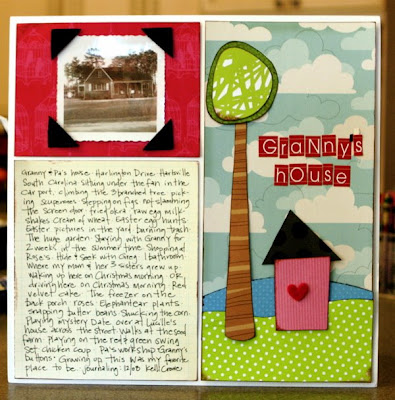 GRaNNy's
HOUSe
Granny & Pa's house Harlington Drive Hartsville
South Carolina sitting under the fan in the
car port. climbing the 3 branched tree pick-
ing scuppernongs stepping on figs not slamming
the screen door fried okra raw egg milk-
shakes Cream of wheat Easter egg hunts
Easter pictures in the yard burning trash
The huge garden Staying with Granny for
2 weeks in the summertime Shopping at
Rose's. Hide & seek with Greg 1 bathroom
Where my mom & her 3 sisters grew up
Waking up here on Christmas morning OR
driving here on Christmas morning Red
Velvet cake The freezer on the
back porch roses Elephant ear plants
snapping butter beans Shucking the corn
Playing mystery Date over at Lucille's
house across the street Walks at the seed
farm Playing on the red & green swing
set chicken coup Pa's workshop Granny's
buttons. Growing up this was my favorite
place to be. journaling: 12/08 Kelli Crowe